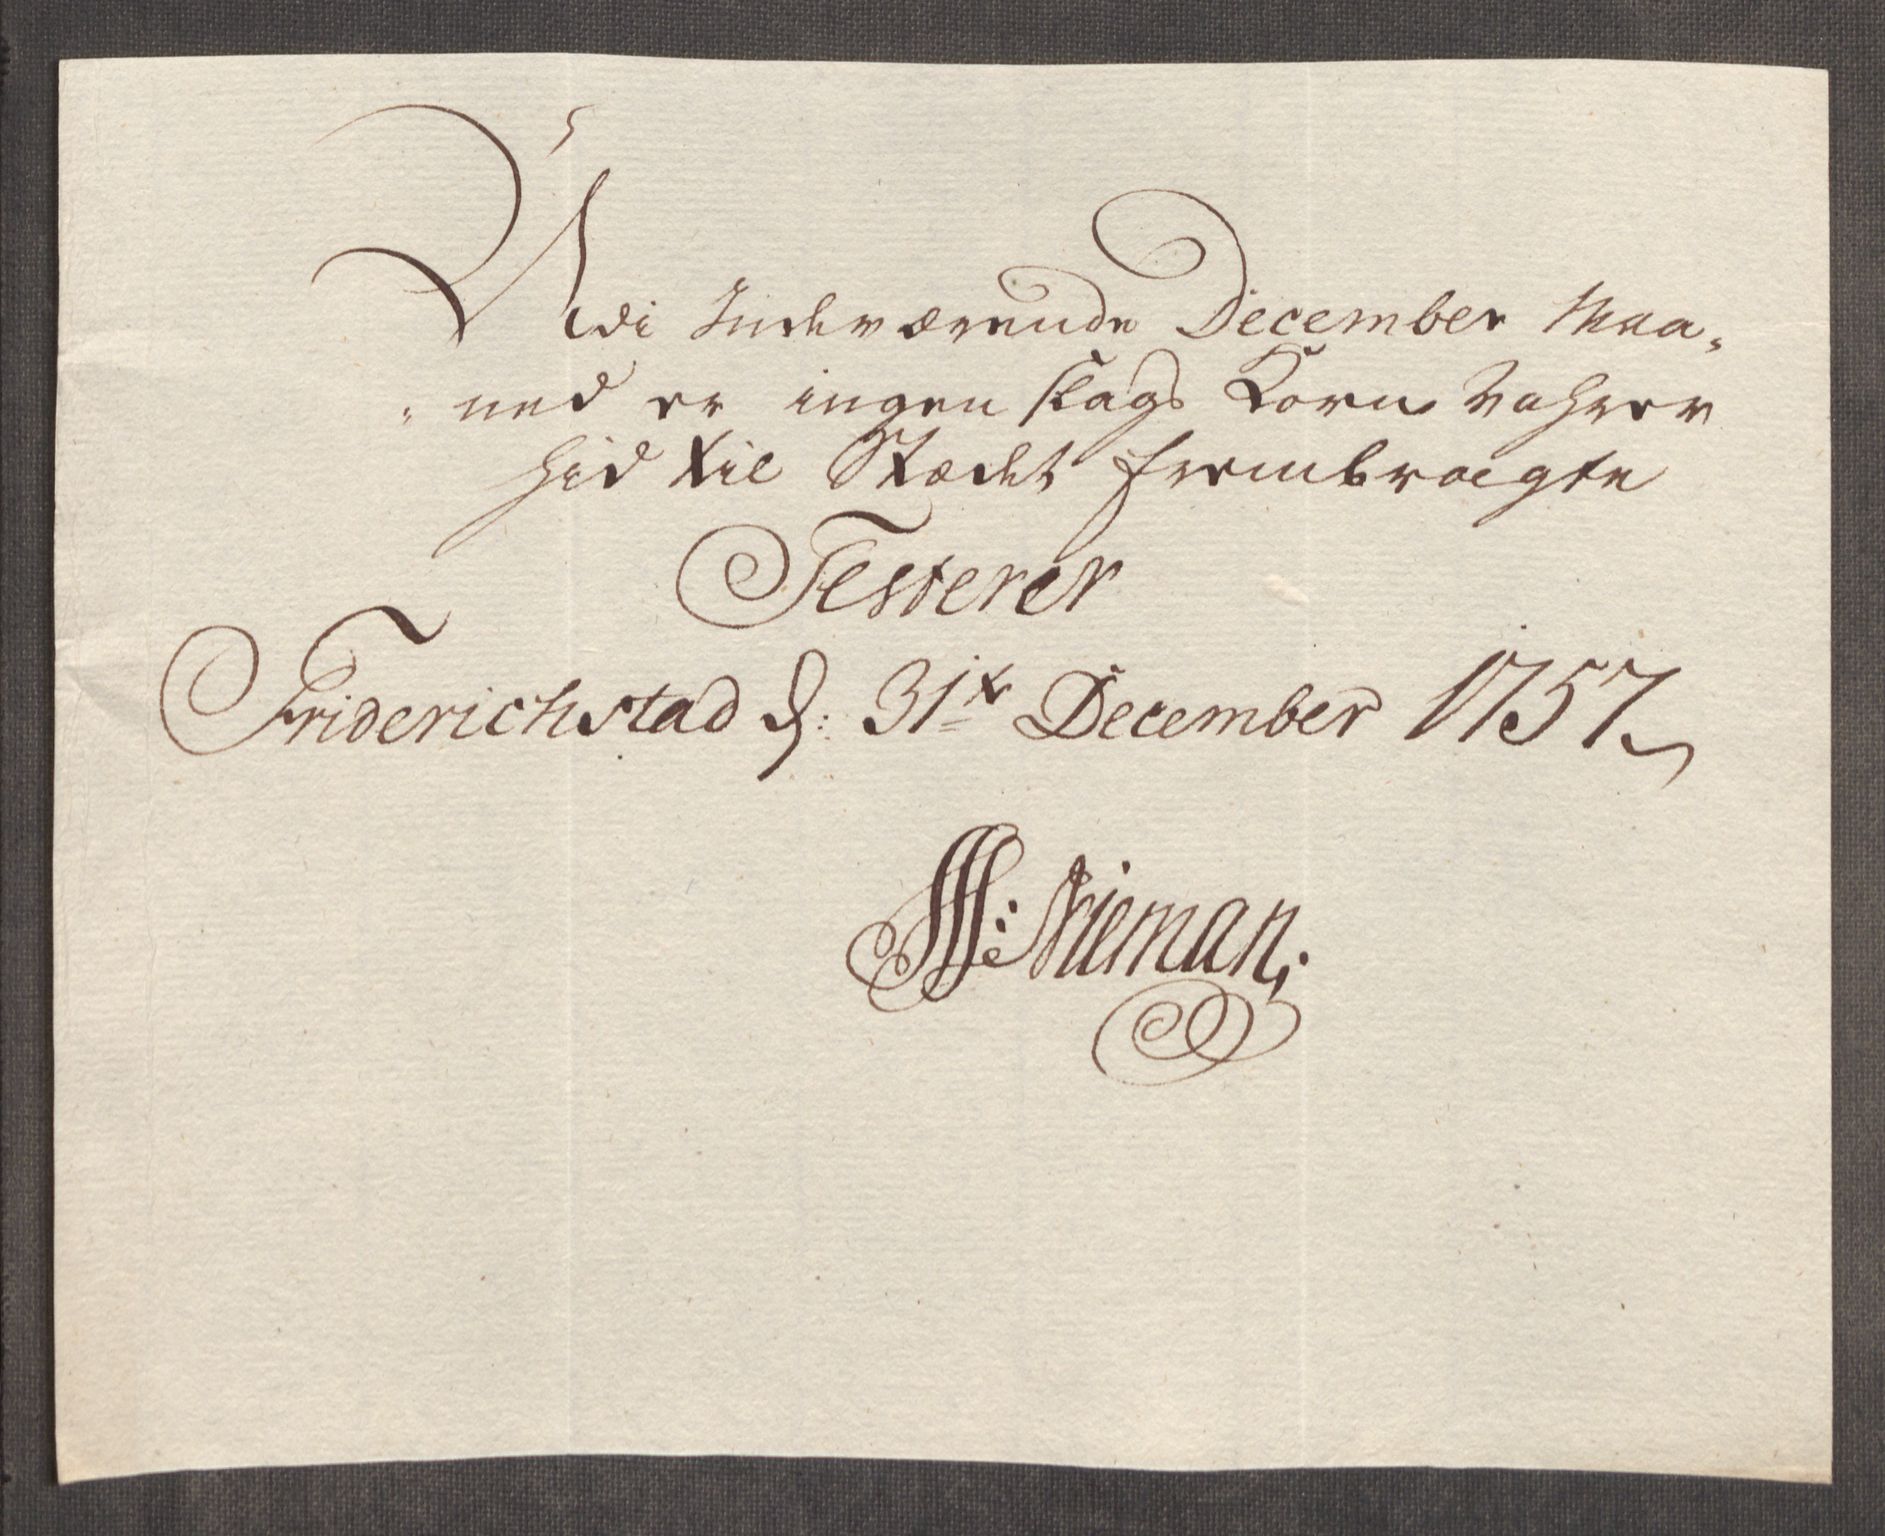 Udi Indeværende December Maa-
-ned er ingen slags Korn Vahrer
hid til Stædet frembragte
Testerer
Friderichstad d: 31te December 1757
H: Nieman